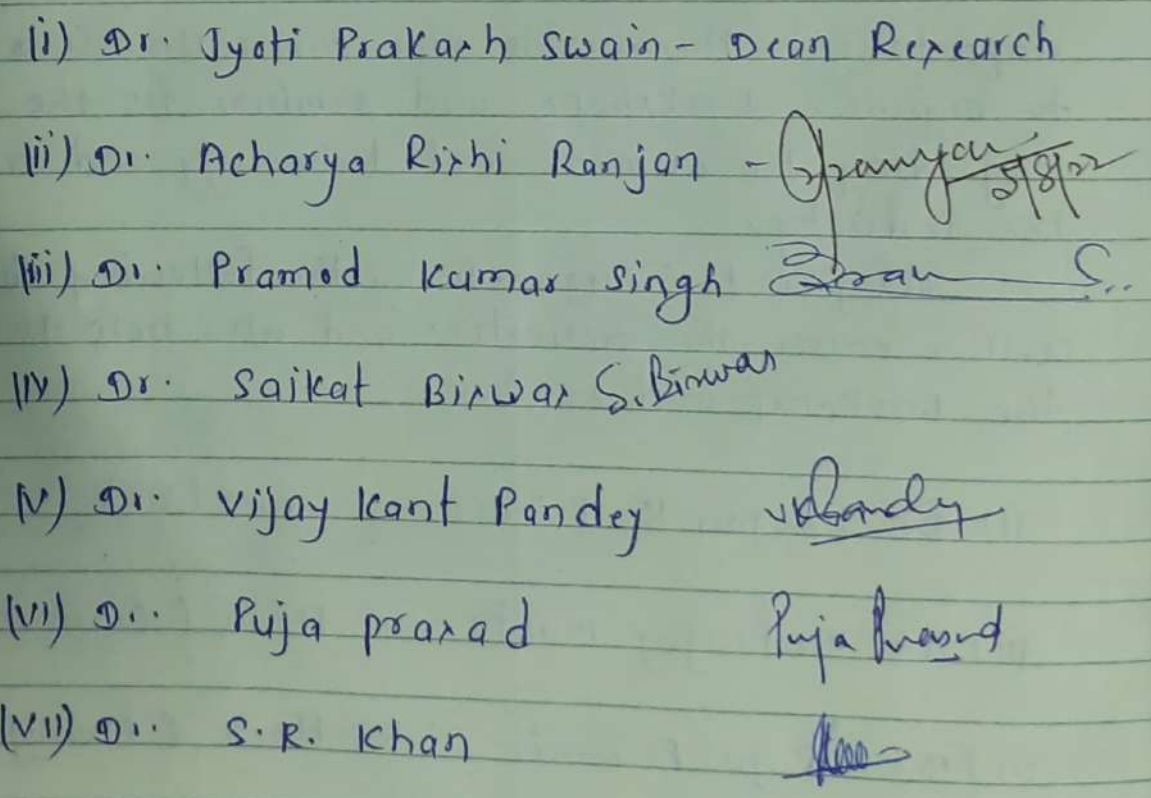 (i) Dr. Jyoti Prakash Swain - Dean Research
(ii) Dr. Acharya Rishi Ranjan - 5/8/22
(iii) Dr. Pramod Kumar Singh
(iv) Dr. Saikat Biswas S. Biswas
(v) Dr. Vijay Kant Pandey VKPandey
(vi) Dr. Puja prasad Puja Prasad
(vii) Dr. S.R. Khan